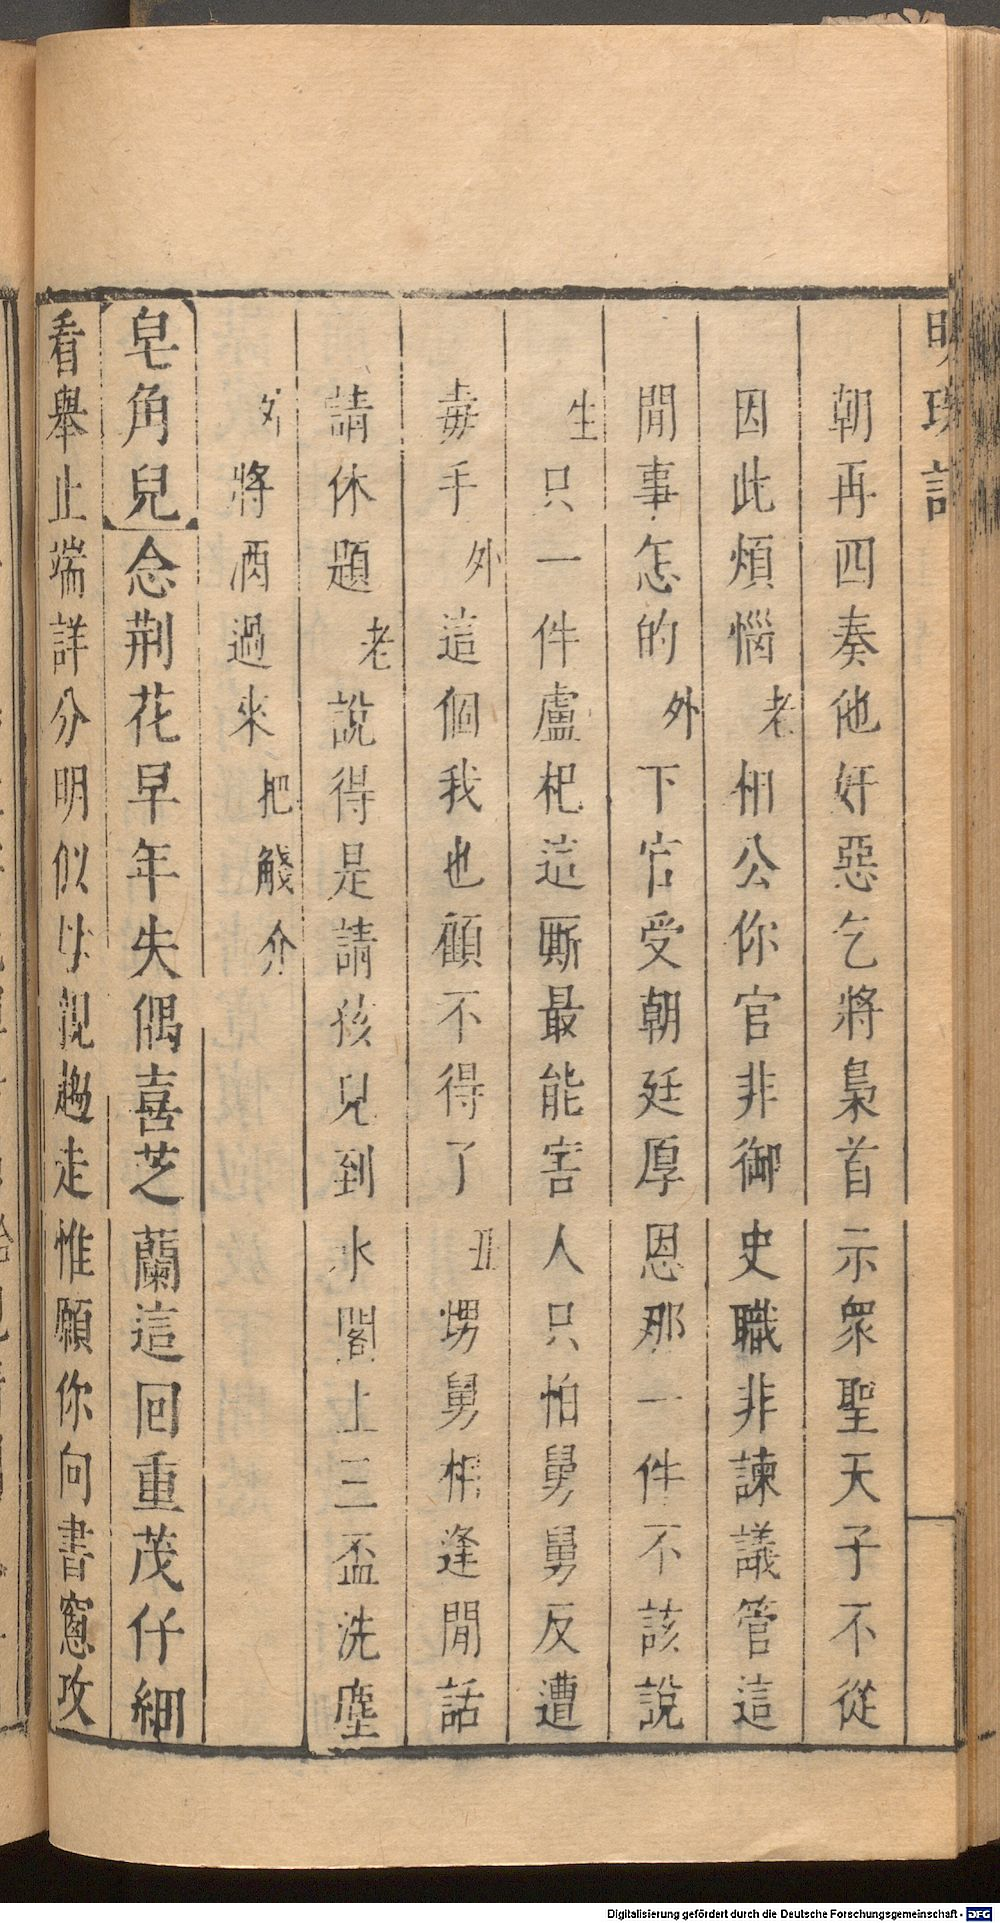 明珠記
朝再四奏他奸惡乞將梟首示衆聖天子不從
因此煩惱老相公你官非御史職非諫議管這
閒事怎的外下官受朝廷厚恩那一件不該說
生只一件盧杞這厮最能害人只怕舅舅反遭
毒手外這個我也顧不得了丑甥舅相逢閒話
請休題老說得是請孩兒到水閣上三盃洗塵
將酒過來把觴介
皂角兒念荆花早年失偶喜芝蘭這回重茂仔細
看舉止端詳分明似母親趨走惟願你向書窻攻
Digitalisierung gefördert durch die Deutsche Forschungsgemeinschaft - DFG